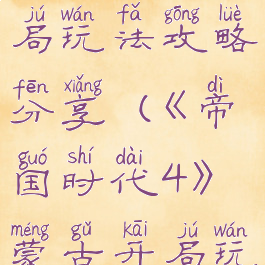 jú wán fǎ gōng lüè
局玩法攻略
fēn xiǎng dì
分享（《帝
guó shí dài
国时代4》
méng gǔ kāi jú wán
蒙古开局玩